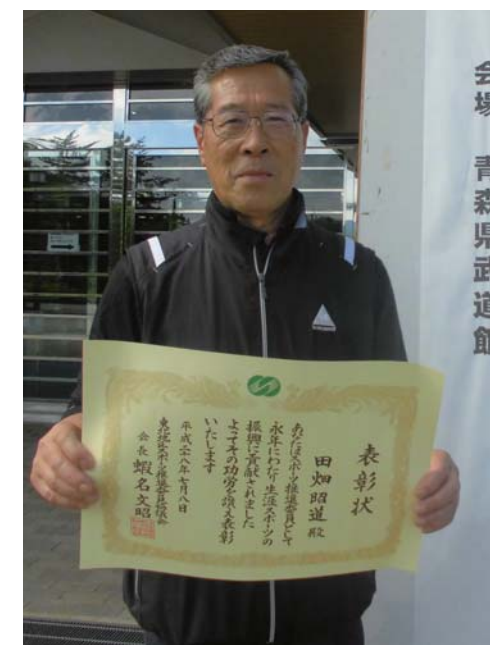 会場 青森県武道館
表彰状
田畑昭道殿
あなたはスポーツ推進委員として
永年にわたり生涯スポーツの
振興に貢献されました
よってその功労を讃え表彰
いたします
平成二八年七月八日
東北地区スポーツ推進委員協議会
会長 蝦名文昭